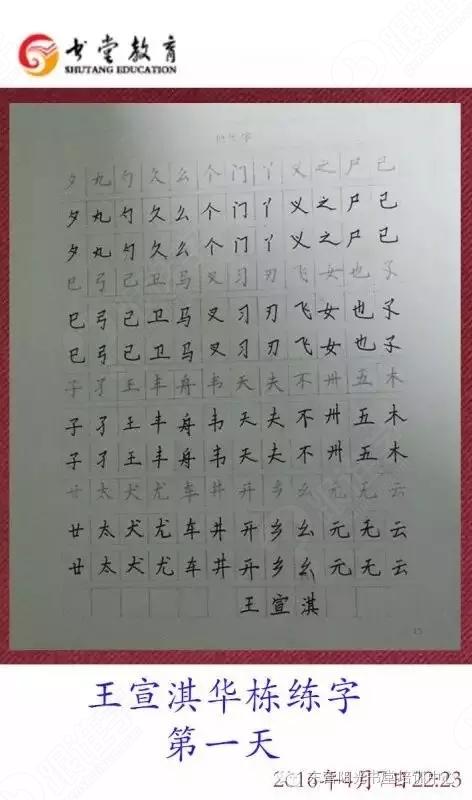 书堂教育
SHUTANG EDUCATION
夕丸勺久么个门丫义之尸已
夕丸勺久么个门丫义之尸已
夕丸勺久么个门丫义之尸已
巳弓己卫马叉习刃飞女也孓
巳弓己卫马叉习刃飞女也孓
巳弓己卫马叉习刃飞女也孓
子孑王丰舟韦天夫不卅五木
子孑王丰舟韦天夫不卅五木
子孑王丰舟韦天夫不卅五木
廿太犬尤车井开乡幺元无云
廿太犬尤车井开乡幺元无云
廿太犬尤车井开乡幺元无云
王宣淇
15
王宣淇华栋练字
第一天
2016年4月7日22:23